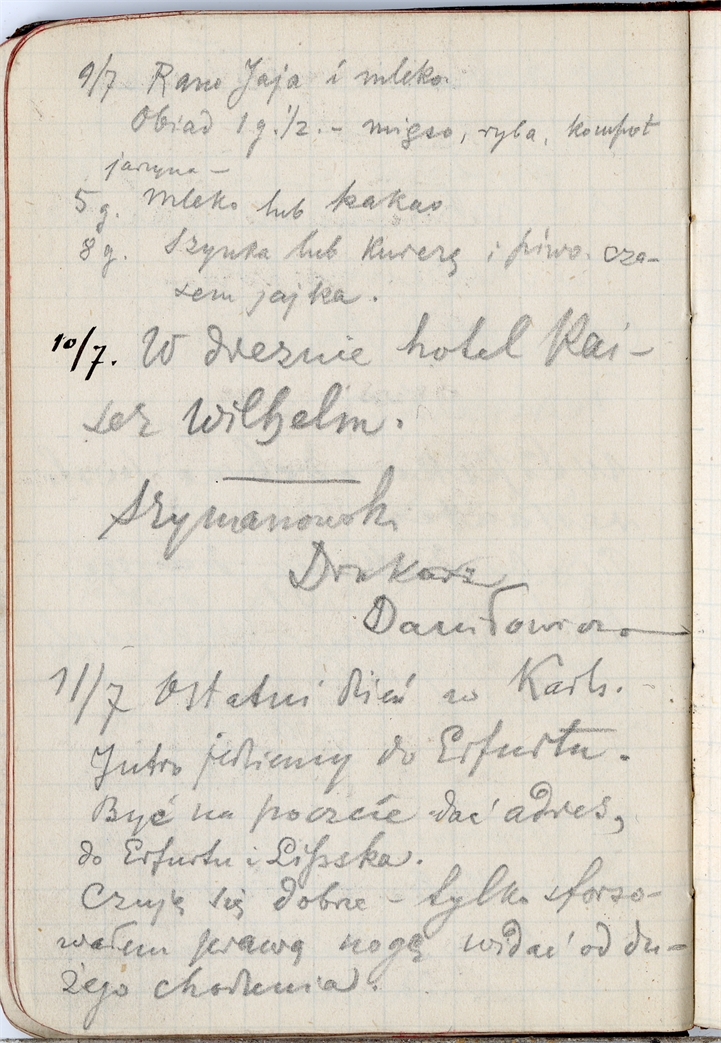 9/7 Rano Jaja i mleko
Obiad 1 g. 1/2. – mięso, ryba, kompot
jarzyna –
5 g. mleko lub kakao
8 g. Szynka lub kurczę i piwo. cza-
sem jajka.
10/7. W dreznie hotel Kai-
ser Wilhelm.
Szymanowski
Drukarz
Daniłowicz
11/7 Ostatni dzień w Karls.
Jutro jedziemy do Erfurtu.
Być na poczcie dać adres,
do Erfurtu i Lipska.
Czuję się dobrze – tylko sforso-
wałem prawą nogę widać od du-
żego chodzenia.